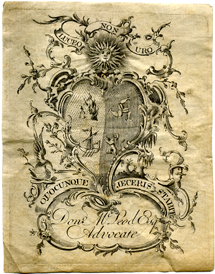 LUCEO NON URO
QUOCUNQUE JECERIS STABIT
Don.d M.cLeod Esq.r
Advocate